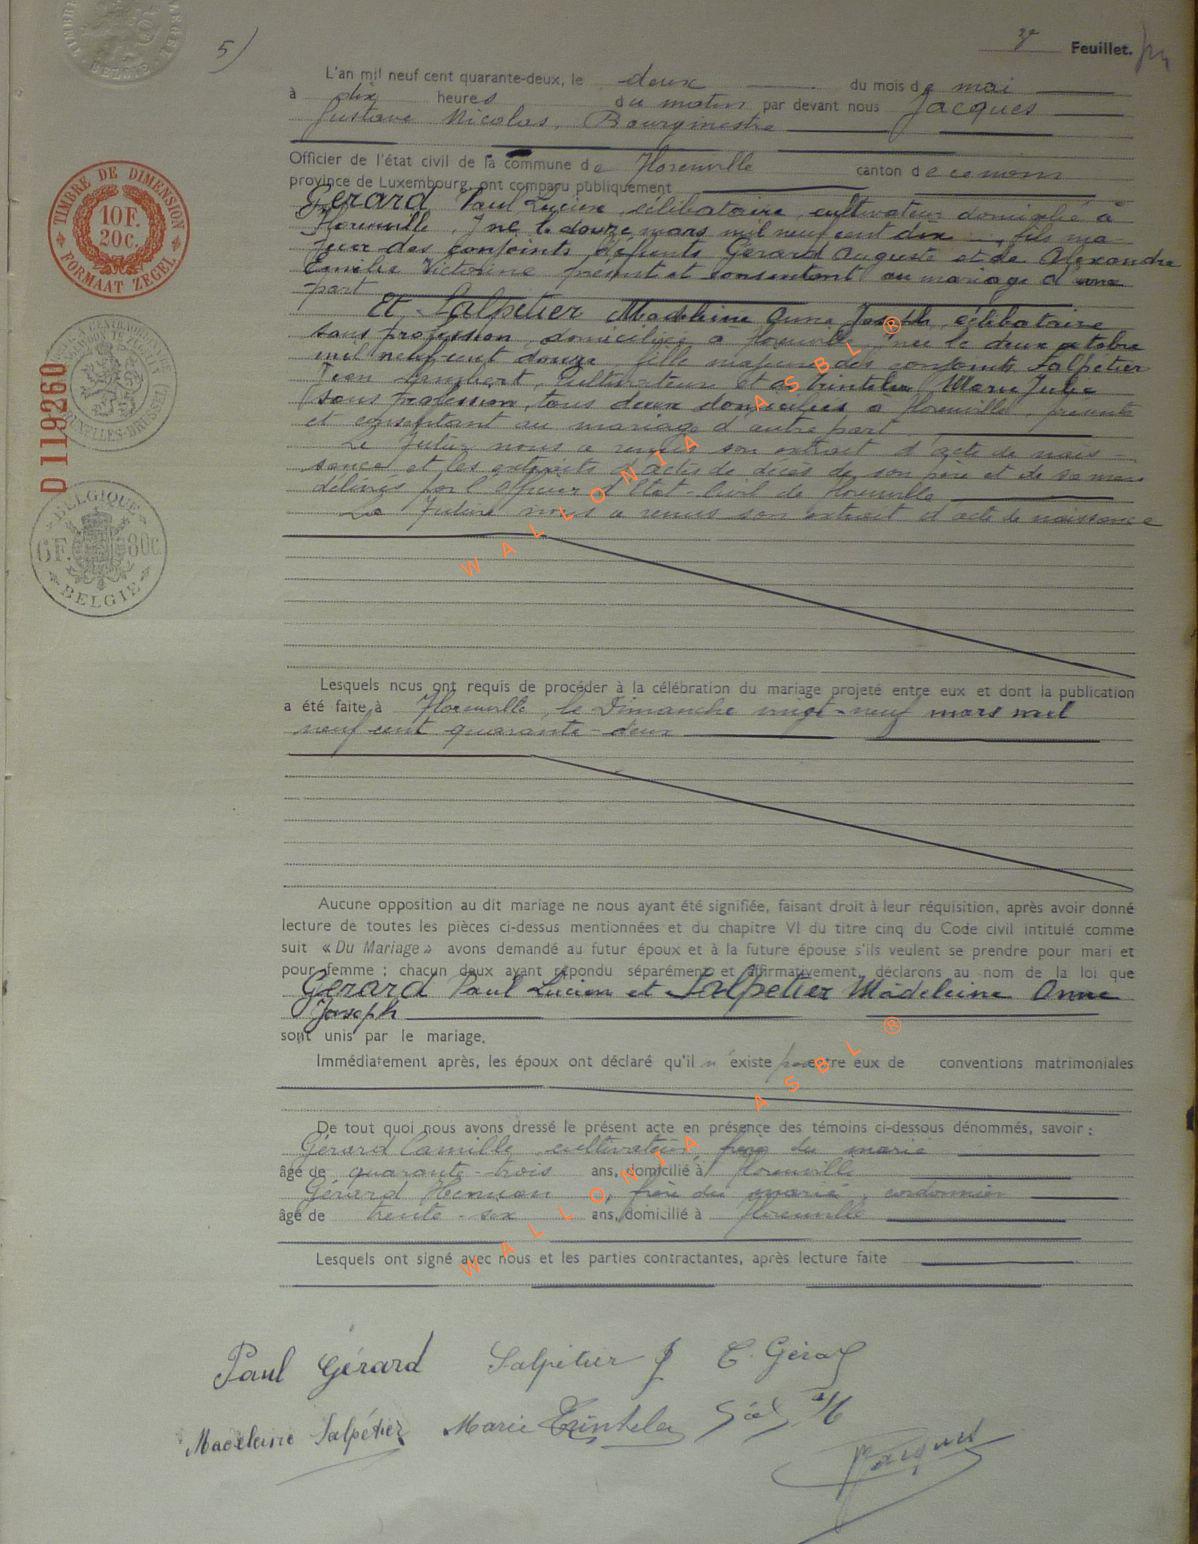 5)
3e Feuillet.
L'an mil neuf cent quarante-deux, le deux du mois de mai
à dix heures du matin par devant nous Jacques
Gustave Nicolas, Bourgmestre
Officier de l'état civil de la commune de Florenville canton de ce nom
province de Luxembourg, ont comparu publiquement
Gérard Paul Lucien, célibataire, cultivateur domicilié à
Florenville, né le douze mars mil neuf cent dix, fils ma-
jeur des conjoints défunts Gérard Auguste et de Alexandre
Emilie Victorine présent et consentant au mariage d'une
part
Et Salpétier Madeleine Anne Joseph, célibataire
sans profession, domiciliée à Florenville, née le deux octobre
mil neuf cent douze, fille majeure des conjoints Salpétier
Jean cultivateur et de Trinteler Marie Julie
sans profession, tous deux domiciliés à Florenville, présente
et consentant au mariage d'autre part
Le futur nous a remis son extrait d'acte de nais-
sance et les extraits d'actes de décès de son père et de sa mère
délivrés par l'Officier d'Etat-Civil de Florenville
La future nous a remis son extrait d'acte de naissance
Lesquels nous ont requis de procéder à la célébration du mariage projeté entre eux et dont la publication
a été faite à Florenville, le Dimanche vingt-neuf mars mil
neuf cent quarante-deux
Aucune opposition au dit mariage ne nous ayant été signifiée, faisant droit à leur réquisition, après avoir donné
lecture de toutes les pièces ci-dessus mentionnées et du chapitre VI du titre cinq du Code civil intitulé comme
suit « Du Mariage » avons demandé au futur époux et à la future épouse s'ils veulent se prendre pour mari et
pour femme ; chacun deux ayant répondu séparément et affirmativement, déclarons au nom de la loi que
Gérard Paul Lucien et Salpétier Madeleine Anne
Joseph
sont unis par le mariage.
Immédiatement après, les époux ont déclaré qu'il n'existe pas entre eux de conventions matrimoniales
De tout quoi nous avons dressé le présent acte en présence des témoins ci-dessous dénommés, savoir :
Gérard Camille, cultivateur, frère du marié
âgé de quarante-trois ans, domicilié à Florenville
Gérard , frère du marié, cordonnier
âgé de trente-six ans, domicilié à Florenville
Lesquels ont signé avec nous et les parties contractantes, après lecture faite
Paul Gérard Salpétier J C. Gérard
Madeleine Salpétier Marie Trinteler
Jacques
TIMBRE DE DIMENSION
10 F.
20C.
FORMAAT ZEGEL
D 119260
BELGIQUE
6F. 80C.
BELGIE
WALLONIA ASBL ®
WALLONIA ASBL ®